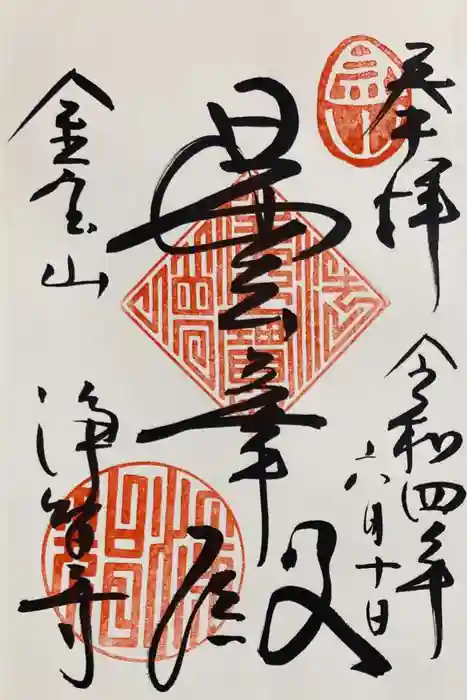 奉拝
令和四年
六月十日
曇華殿
金宝山
浄智寺